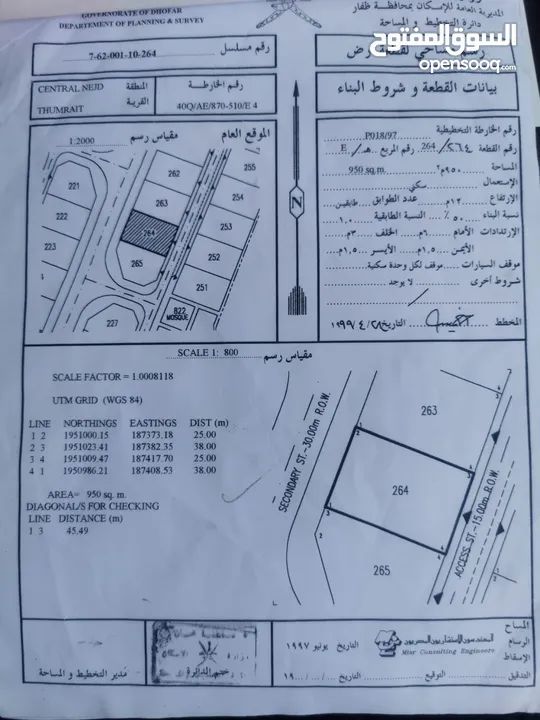 GOVERNORATE OF DHOFAR
DEPARTEMENT OF PLANNING & SURVEY
المديرية العامة للإسكان بمحافظة ظفار
دائرة التخطيط و المساحة
السوق المفتوح
opensooq.com
7-62-001-10-264 رقم مسلسل
CENTRAL NEJD المنطقة
THUMRAIT القرية
رقم الخارطة
40Q/AE/870-510/E 4
بيانات القطعة و شروط البناء
1:2000 مقياس رسم
الموقع العام
221
222
223
262
263
264
265
227
255
254
253
252
251
822
MOSQUE
N
رقم الخارطة التخطيطية P018/97
رقم القطعة ٢٦٤/ 264 رقم المربع هـ/ E
المساحة ٩٥٠م٢ 950 sq.m.
الإستعمال سكني
الإرتفاع ١٢م عدد الطوابق طابقين
نسبة البناء ٥٠٪ النسبة الطابقية ١.٠
الإرتدادات الأمام ٦م الخلف ٣م
الأيمن ١.٥م الأيسر ١.٥م
موقف السيارات موقف لكل وحدة سكنية
شروط أخرى لا يوجد
المخطط التاريخ ٢٨/٤/١٩٩٧
SCALE 1: 800 مقياس رسم
SCALE FACTOR = 1.0008118
UTM GRID (WGS 84)
LINE NORTHINGS EASTINGS DIST (m)
1 2 1951000.15 187373.18 25.00
2 3 1951023.41 187382.35 38.00
3 4 1951009.47 187417.70 25.00
4 1 1950986.21 187408.53 38.00
AREA= 950 sq. m.
DIAGONAL/S FOR CHECKING
LINE DISTANCE (m)
1 3 45.49
SECONDARY ST.-30.00m R.O.W.
263
264
265
ACCESS ST.-15.00m R.O.W.
مدير التخطيط و المساحة
ختم الدائرة
المساح
الرسام
الإسقاط
التدقيق
التاريخ يونيو ١٩٩٧
المهندسون الإستشاريون المصريون
Misr Consulting Engineers
التوقيع
التاريخ .../.../...١٩